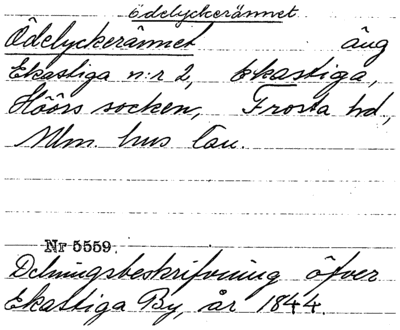 Ödelyckerännet
Ödelyckerännet äng
Ekastiga n:r 2, Ekastiga,
Höörs socken, Frosta hd,
Mlm. hus län.
Nr 5559.
Delningsbeskrifvning öfver
Ekastiga By, år 1844.